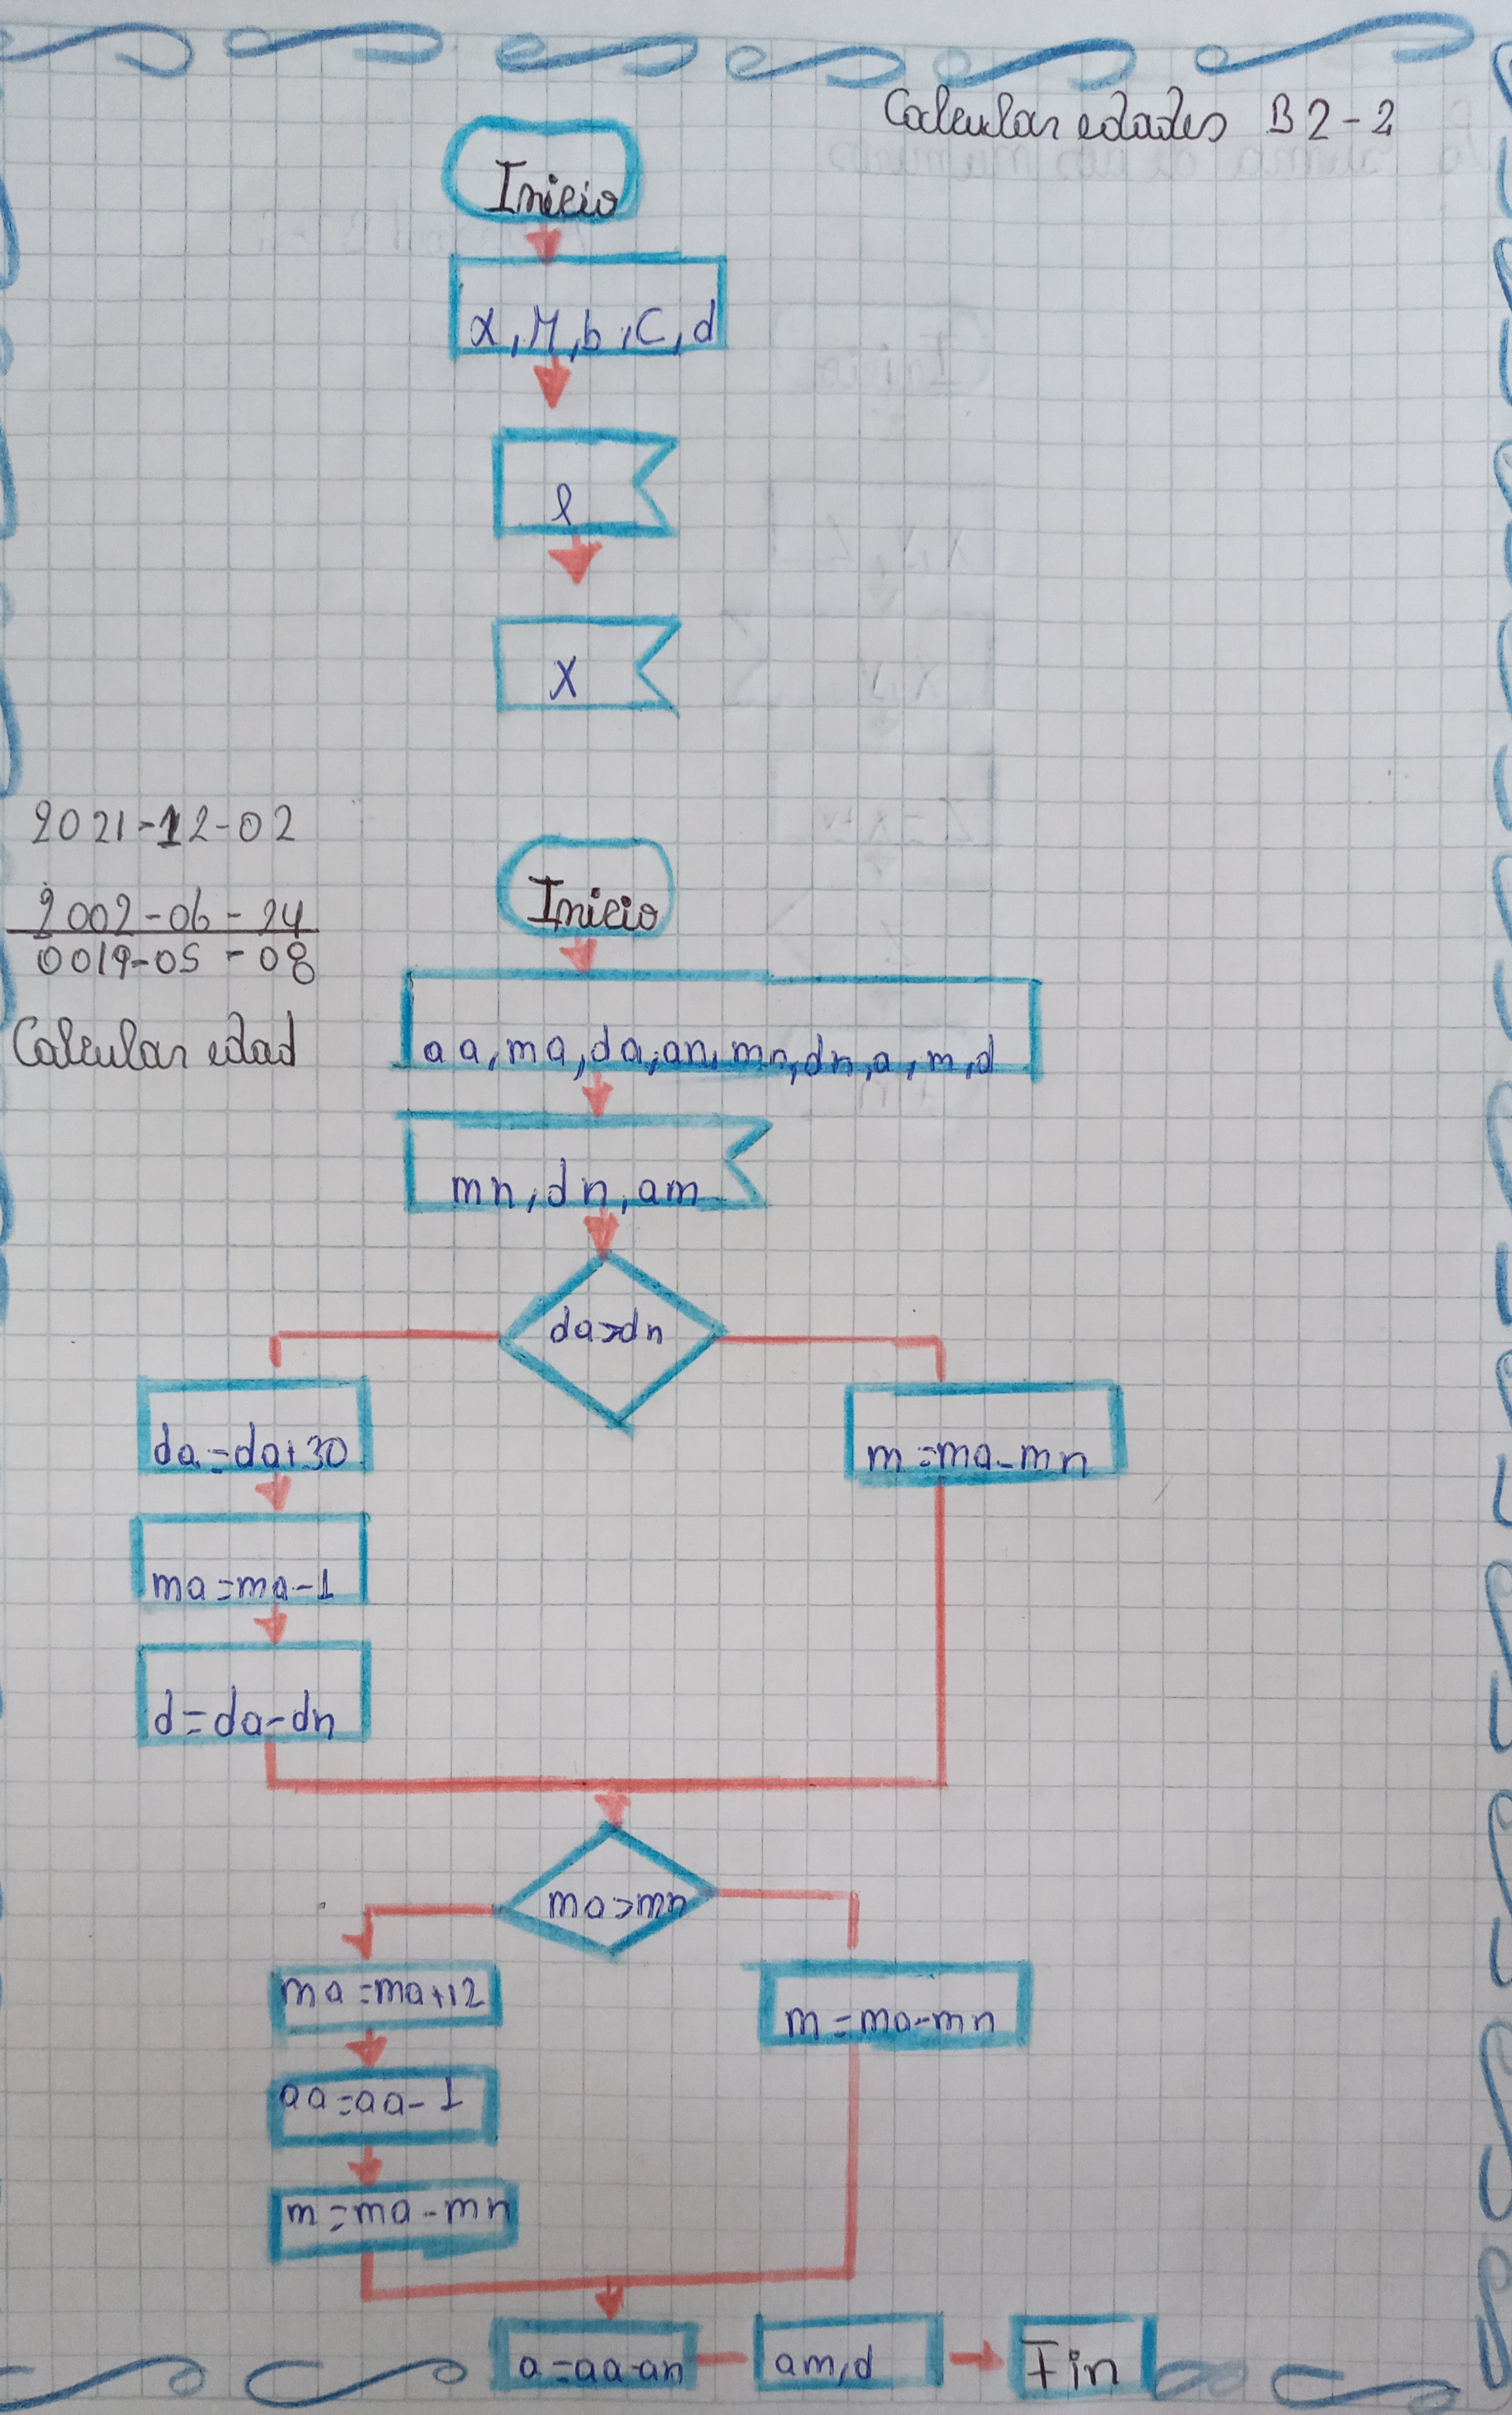 Calcular edades B2-2
Inicio
x, M, b, C, d
l
X
2021-12-02
2002-06-24
0019-05-08
Calcular edad
Inicio
aa, ma, da, an, mn, dn, a, m, d
mn, dn, am
da>dn
da=da+30
m=ma-mn
ma=ma-1
d=da-dn
ma>mn
ma=ma+12
m=ma-mn
aa=aa-1
m=ma-mn
a=aa-an
am,d
Fin